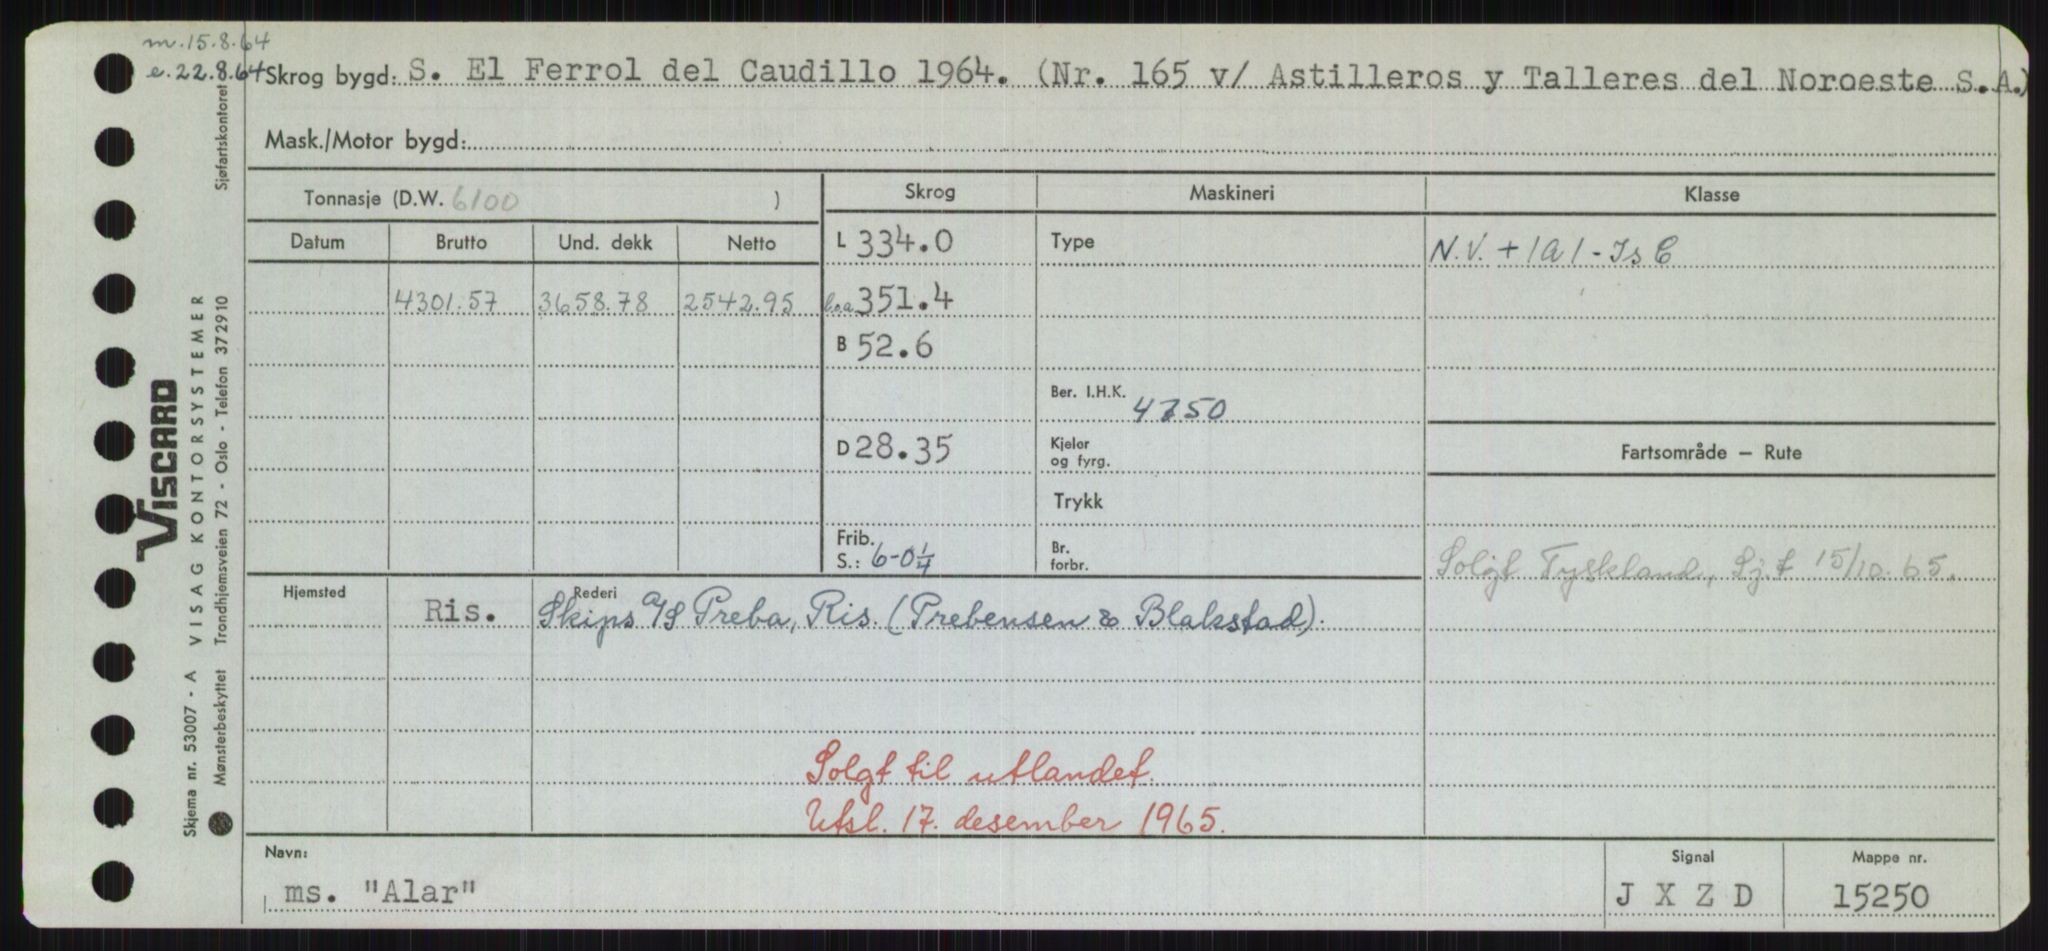 m. 15.8.64
e. 22.8.64
Skrog bygd: S. El Ferrol del Caudillo 1964. (Nr. 165 v/ Astilleros y Talleres del Noroeste S.A.)
Mask./Motor bygd:
Tonnasje (D.W. 6100 )
Skrog Maskineri Klasse
Datum Brutto Und. dekk Netto
L 334.0 Type N.V. + 1A1 - Is C
4301.57 3658.78 2542.95 l.o.a. 351.4
B 52.6
Ber. I.H.K. 4750
D 28.35 Kjeler og fyrg. Fartsområde — Rute
Trykk
Frib. S.: 6-0¼ Br. forbr. Solgt Tyskland, Sj.f 15/10.65.
Hjemsted Rederi
Ris. Skips A/S Preba, Ris. (Prebensen & Blakstad).
Solgt til utlandet.
Utsl. 17. desember 1965.
Navn: Signal Mappe nr.
ms. "Alar" J X Z D 15250
VISCARD
Skjema nr. 53007 - A VISAG KONTORSYSTEMER
Mønsterbeskyttet Trondhjemsveien 72 - Oslo - Telefon 372910 Sjøfartskontoret